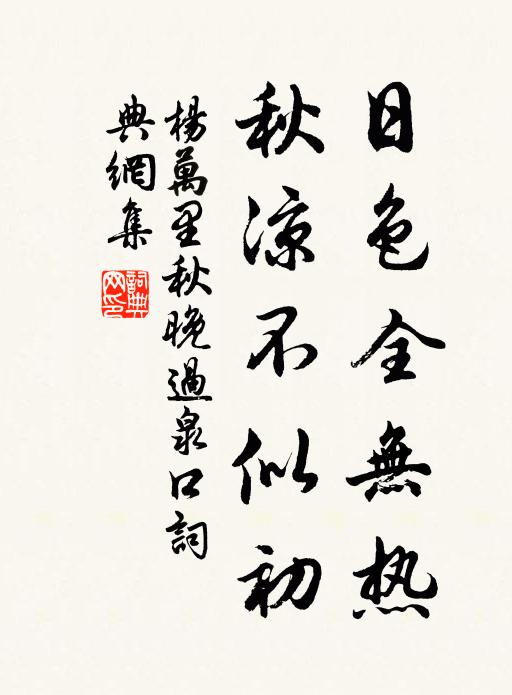 日色全無热
秋凉不似初
楊萬里秋晚過泉口詞
典網集
詞典网印